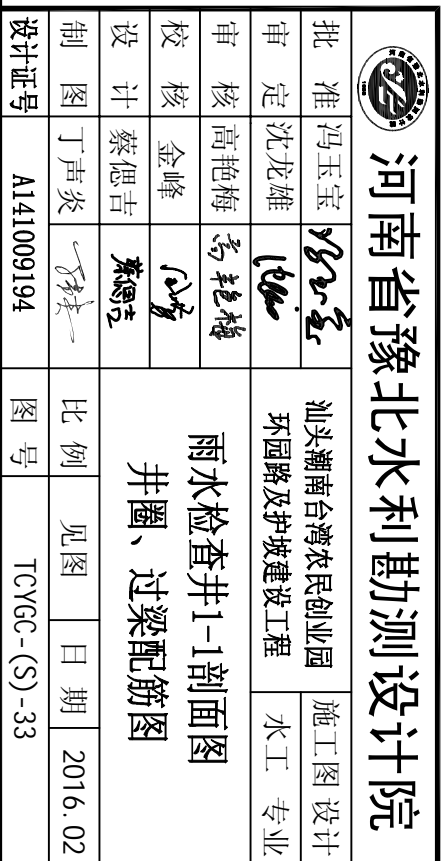 河南省豫北水利勘测设计院
批准 冯玉宝
审定 沈龙雄
审核 高艳梅 高艳梅
校核 金峰
设计 蔡偲吉 蔡偲吉
制图 丁声炎
设计证号 A141009194
汕头潮南台湾农民创业园
环园路及护坡建设工程
施工图 设计
水工 专业
雨水检查井1-1剖面图
井圈、过梁配筋图
比例 见图 日期 2016.02
图号 TCYGC-(S)-33